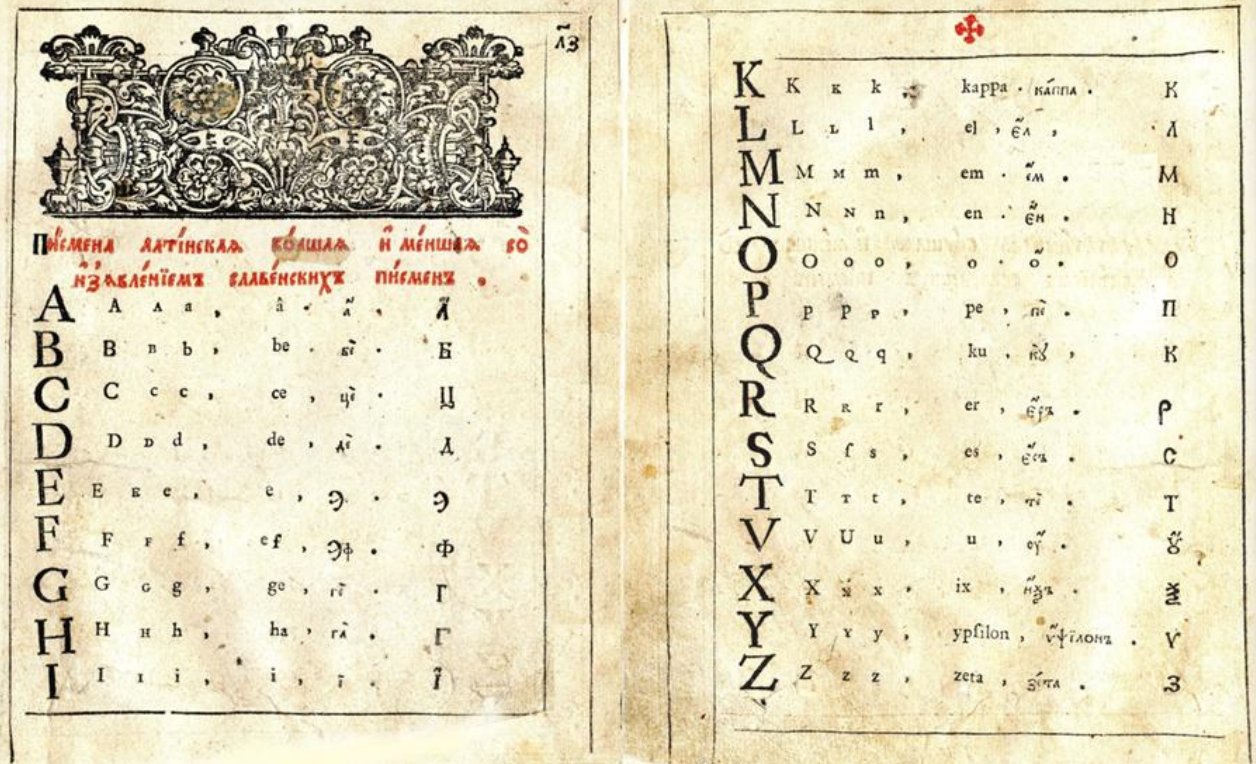 л҃з
Пи́смена лати́нская бо́лшая и҆ ме́ншая со
и҆з̾ѧвле́нїемъ славе́нскихъ пи́сменъ .
A A ᴀ a , â . а҆̀ . А҆̀
B B ʙ b , be . бѐ . Б
C C c c , ce , цѐ . Ц
D D ᴅ d , de , дѐ . Д
E E ᴇ e , e , Э . Э
F F ꜰ f , ef , Эф . Ф
G G ɢ g , ge , гѐ . Г
H H ʜ h , ha , га̀ . Г
I I ı i , i , ї . Ї
K K ᴋ k , kappa . ка́ппа . К
L L ʟ l , el , є҆́л , Л
M M ᴍ m , em . є҆́м . М
N N ɴ n , en . є҆́н . Н
O O o o , o . о҆̀ . О
P P p p , pe , пѐ . П
Q Q q q , ku , кꙋ̀ , К
R R ʀ r , er , є҆́ръ . Р
S S ſ s , es , є҆́съ . С
T T ᴛ t , te , тѐ . Т
V V U u , u , оу҆̀ . Ꙋ҆̀
X X x x , ix , и҆́ѯъ . Ѯ
Y Y ʏ y , ypſilon , ѵ҆ѱїлонъ . Ѵ
Z Z z z , zeta , зи́та . З